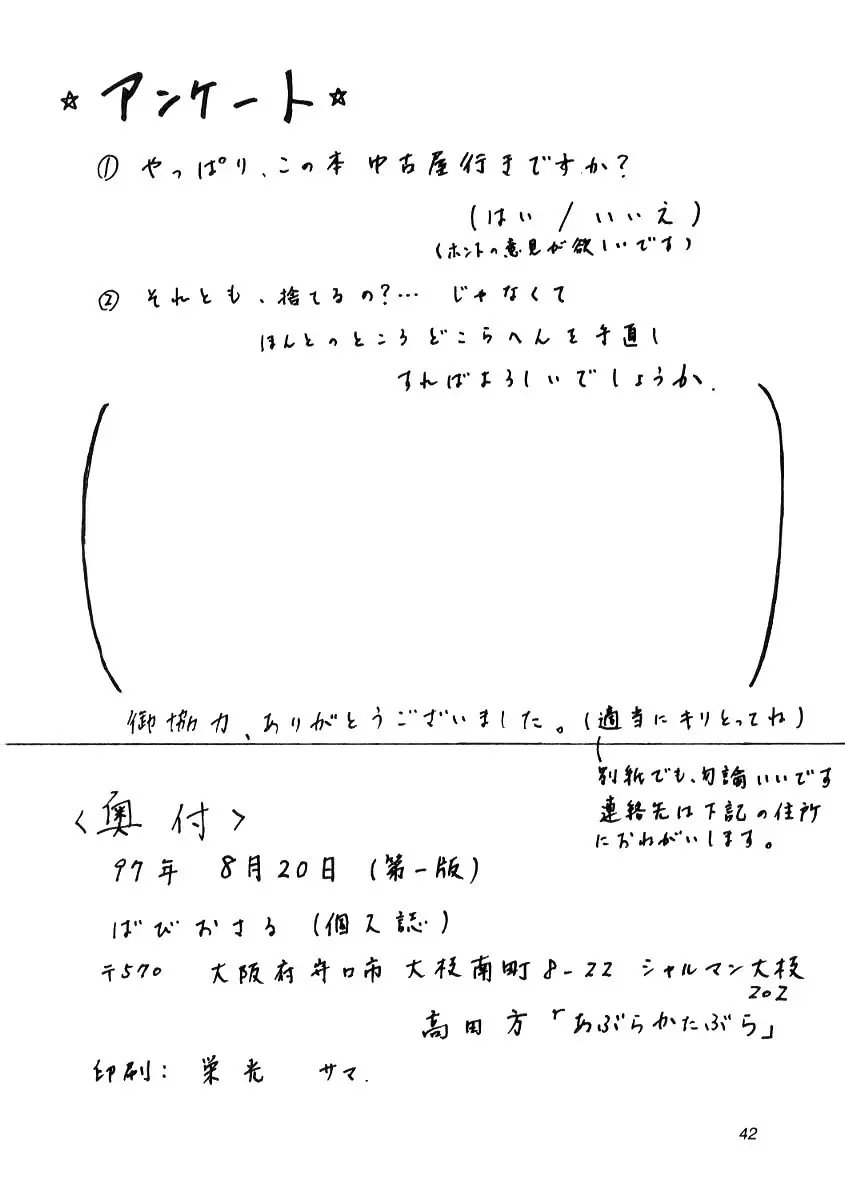 ☆アンケート☆
① やっぱり、この本中古屋行きですか?
(はい / いいえ)
(ホントの意見が欲しいです)
② それとも、捨てるの?… じゃなくて
ほんとのところどこらへんを手直し
すればよろしいでしょうか.
御協力、ありがとうございました。(適当にキリとってね)
別紙でも、勿論いいです
連絡先は下記の住所
におねがいします。
<奥付>
97年 8月20日 (第一版)
ばびおさる (個人誌)
〒570 大阪府守口市 大枝南町8-22 シャルマン大枝
202
高田方「あぶらかたぶら」
印刷: 栄光 サマ.
42